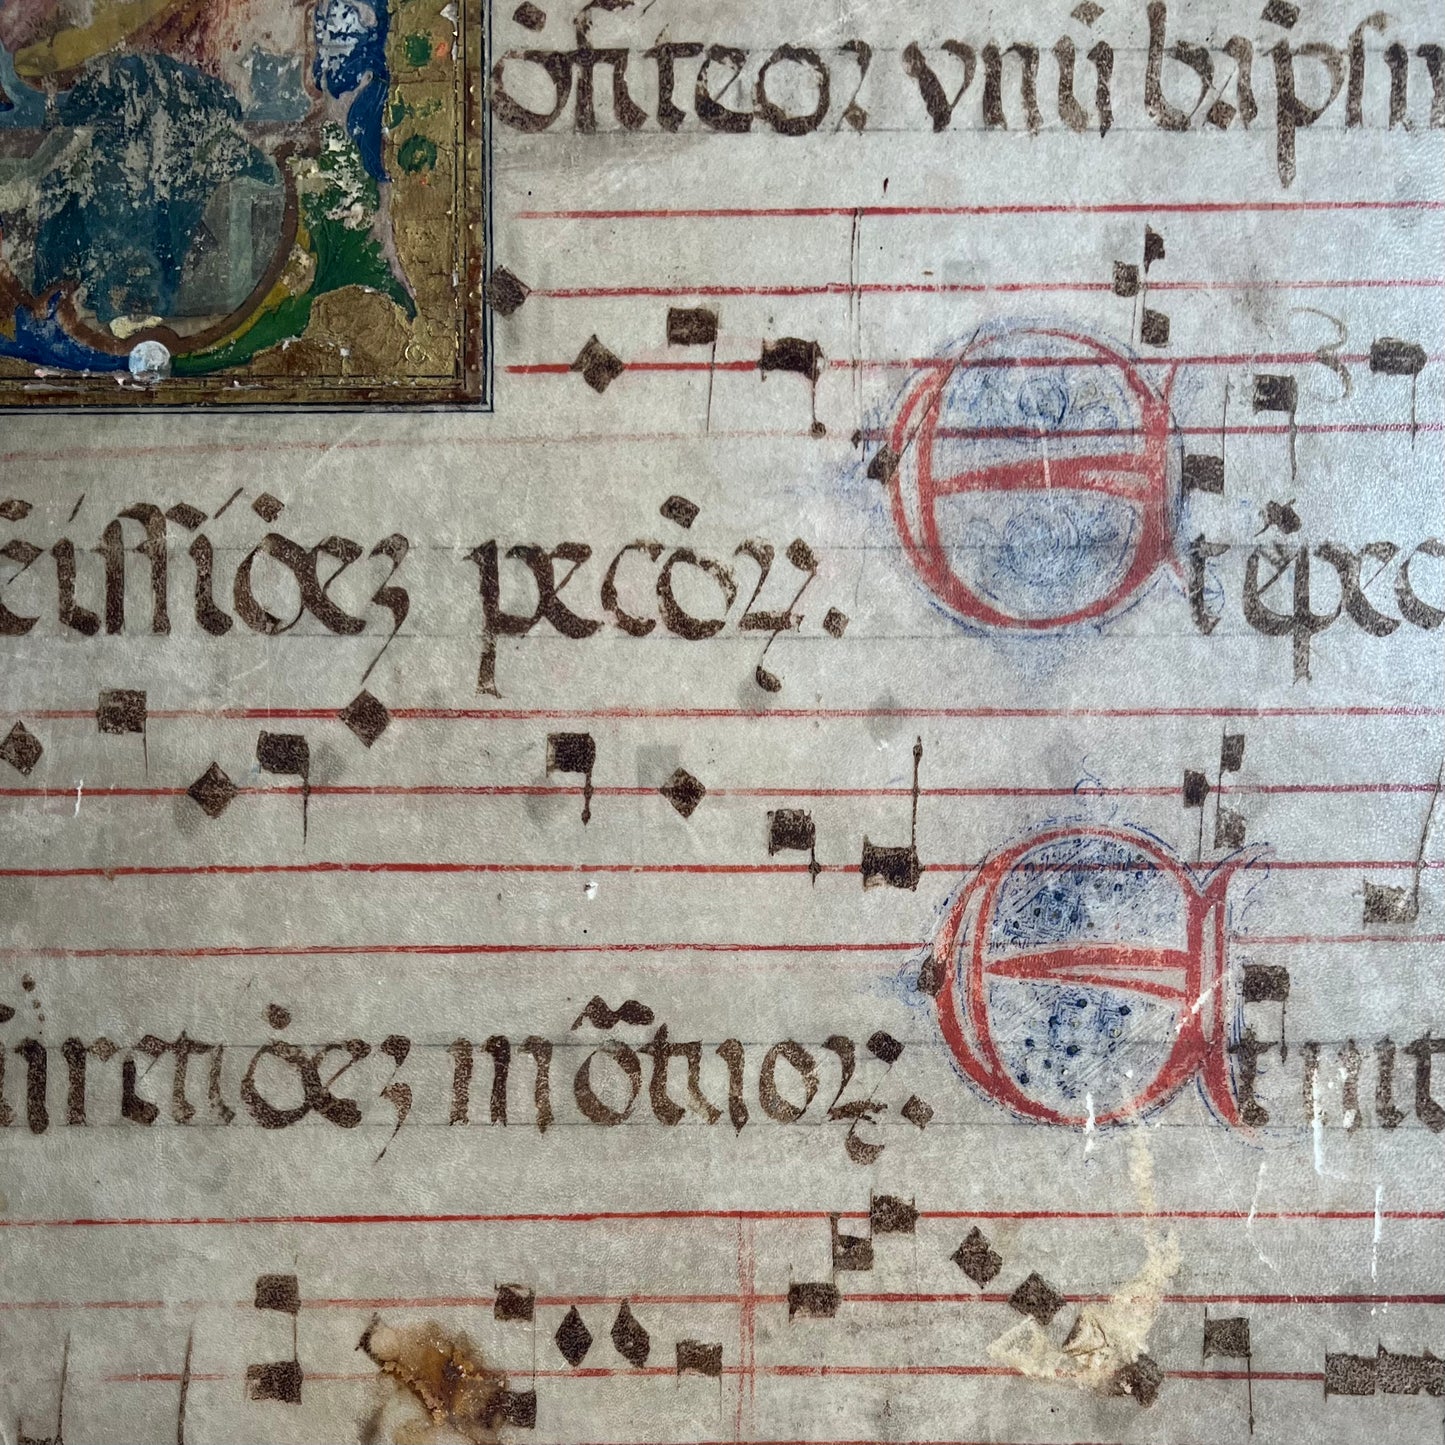 ōfiteor vnū bapſm
ēiſſiōez peccōꝝ. Et expec
ſurrectiōez mōtuoꝝ. Et vit